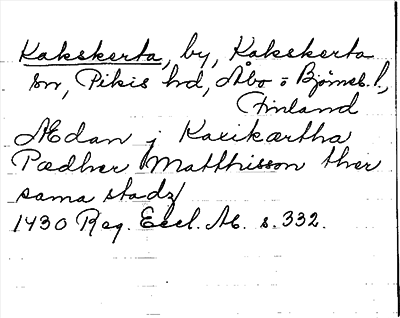 Kakskerta, by, Kakskerta
sn, Pikis hd, Åbo o Björneb. l.,
Finland
Ædan j Kaxikærtha
Pædher Matthisson ther
sama stadz
1430 Reg. Eccl. Ab. s. 332.